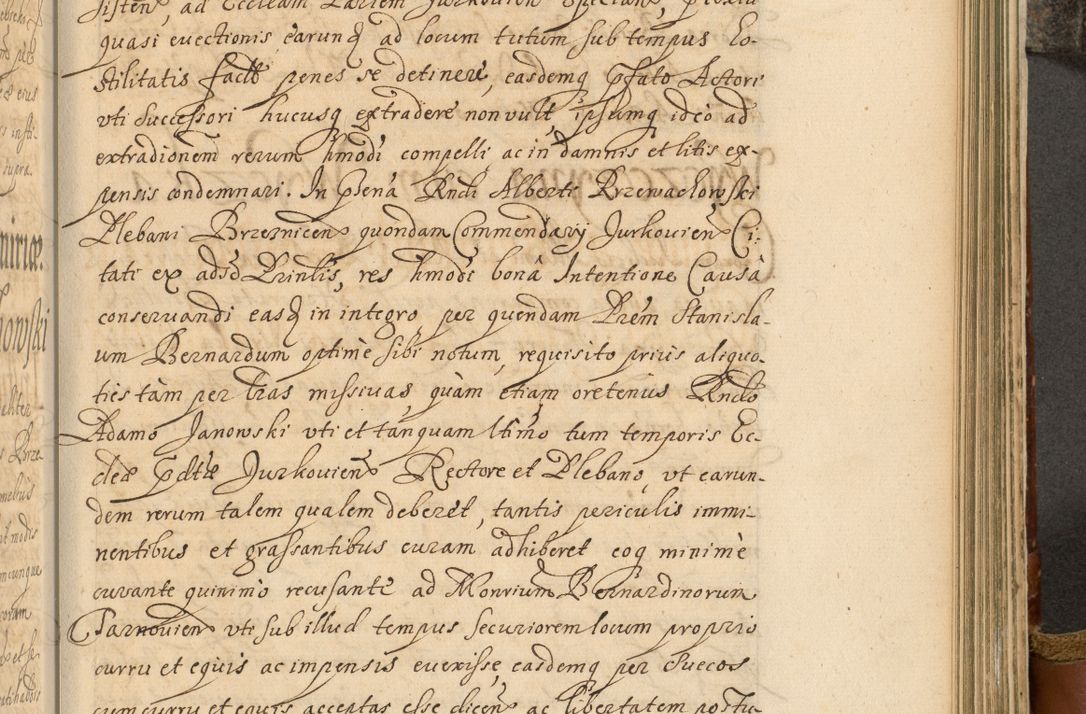 sisten, ad Eccleam Parlem Jurkovien
quasi evectionis earunq ad locum tutum sub tempus Ho-
stilitatis factae penes se detinere, easdemq pfato Actori
uti successori hucusq extradere non vult, ipsumq ideo ad
extradionem rerum hmodi compelli ac in damnis et litis ex-
pensis condemnari. In psena Rndi Alberti Przewachowski
Plebani Brzeznicen quondam Commendarij Jurkovien Ci-
tati ex adso Prinlis, res hmodi bonâ Intentione Causâ
conservandi easq in integro per quendam Prem Stanisla-
um Bernardum optime sibi notum, requisito prius aliquo-
ties tàm per lras missivas, quàm etiam oretenus Rndo
Adamo Janowski uti et tanquam ltimo tum temporis Ec-
cleae pdtae Jurkovien Rectore et Plebano, ut earun-
dem rerum talem qualem deberet, tantis periculis immi-
nentibus et grassantibus curam adhiberet eoq minimè
curante quinimò recusante ad Monrium Bernardinorum
Tarnovien uti sub illud tempus securiorem locum proprio
curru et equis ac impensis evexisse, easdemq per Suecos
cum curru et equis acceptas esse dicen ac libertatem postu-